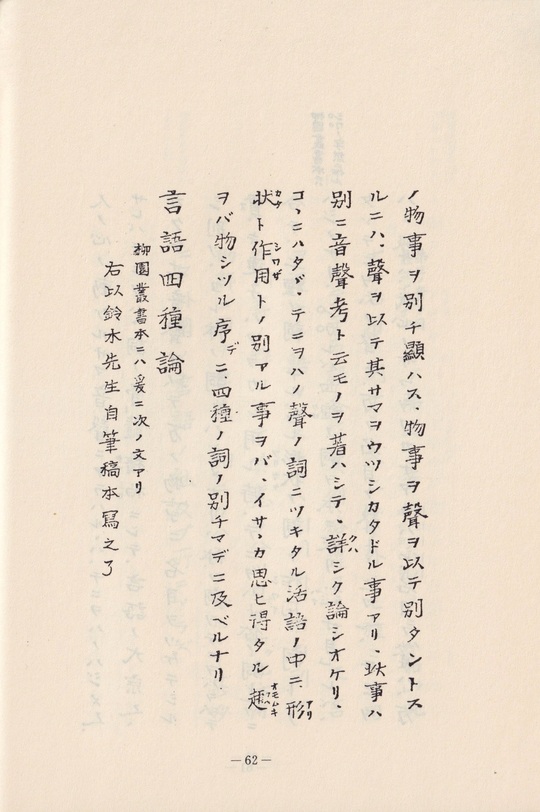 ノ物事ヲ別チ顯ハス、物事ヲ聲ヲ以テ別タントス
ルニハ、聲ヲ以テ其サマヲウツシカタドル事アリ、此事ハ
別ニ音聲考ト云モノヲ著ハシテ、詳シク論シオケリ、
コヽニハタヾ、テニヲハノ聲ノ詞ニツキタル活語ノ中ニ、形
アリ
状ト作用トノ別アル事ヲバ、イサヽカ思ヒ得タル趣
カタ
シワザ
オモムキ
ヲバ物シツル序デニ、四種ノ詞ノ別チマデニ及ベルナリ、
言語四種論
柳園叢書本ニハ爰ニ次ノ文アリ
右以鈴木先生自筆稿本寫之了
—62—